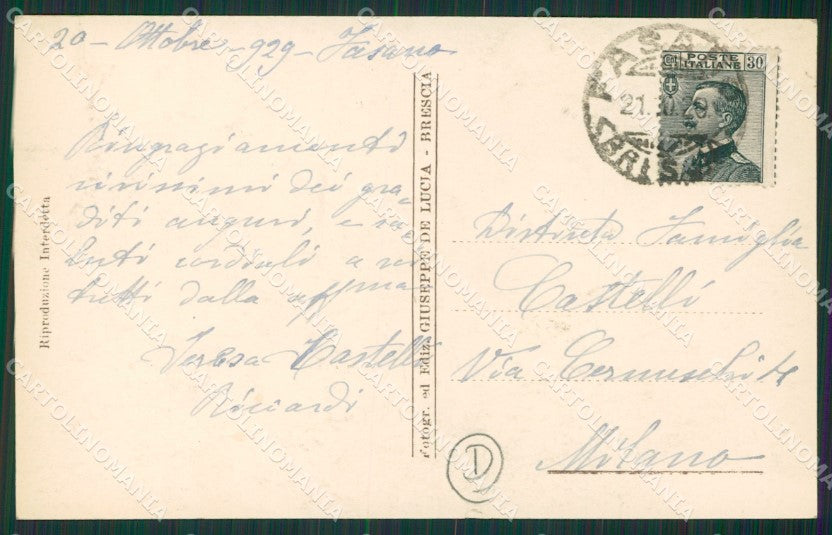 20 - Ottobre - 929 - Fasano
Ringraziamenti
vivissimi dei gra-
diti auguri, e sa-
luti cordiali a voi
tutti dalla aff.ma
Teresa Castelli
Riccardi
Riproduzione Interdetta
Fotogr. ed Ediz. GIUSEPPE DE LUCIA - BRESCIA
FASA
21.10
POSTE
ITALIANE
30
Distinta Famiglia
Castelli
Via Cernuschi
Milano
D
CARTOLINOMANIA